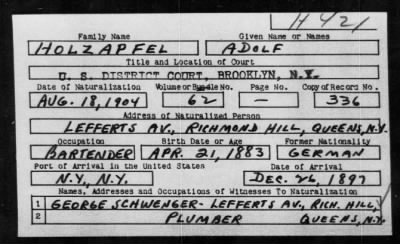 H 421
Family Name Given Name or Names
HOLZAPFEL ADOLF
Title and Location of Court
U. S. DISTRICT COURT, BROOKLYN, N.Y.
Date of Naturalization Volume or Bundle No. Page No. Copy of Record No.
AUG. 18, 1904 62 — 336
Address of Naturalized Person
LEFFERTS AV., RICHMOND HILL, QUEENS, N.Y.
Occupation Birth Date or Age Former Nationality
BARTENDER APR. 21, 1883 GERMAN
Port of Arrival in the United States Date of Arrival
N.Y., N.Y. DEC. 26, 1897
Names, Addresses and Occupations of Witnesses To Naturalization
1 GEORGE SCHWENGER - LEFFERTS AV., RICH. HILL,
2 PLUMBER QUEENS, N.Y.